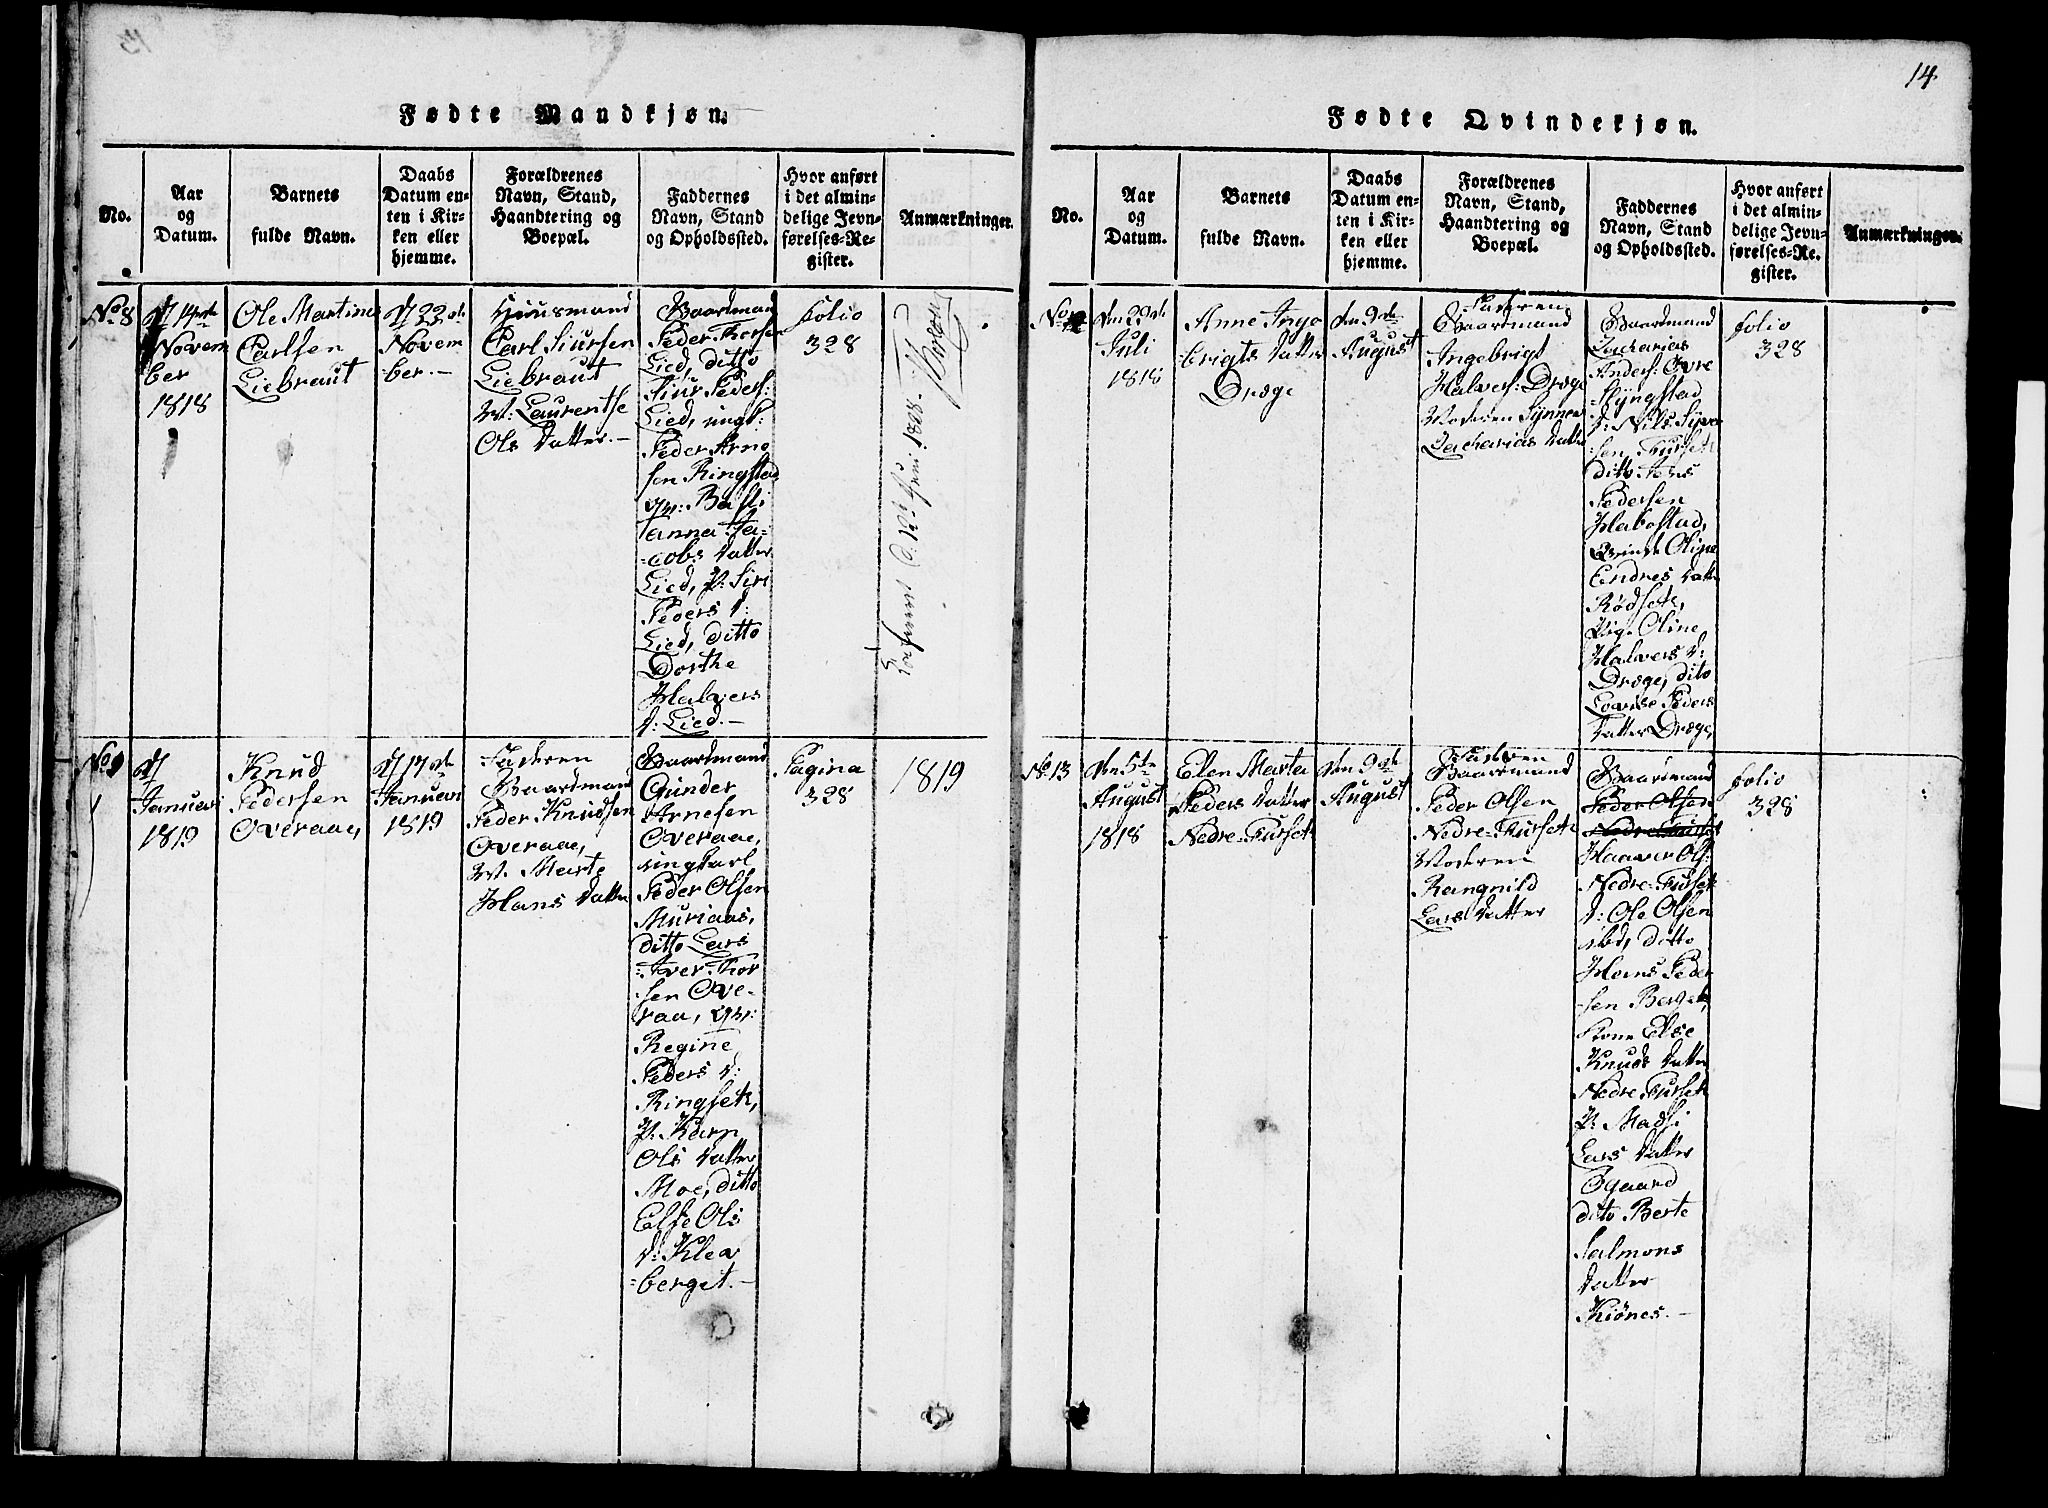 14
Fødte Mandkjøn.
No.
Aar
og
Datum.
Barnets
fulde Navn.
Daabs
Datum en-
ten i Kir-
ken eller
hjemme.
Forældrenes
Navn, Stand,
Haandtering og
Boepæl.
Faddernes
Navn, Stand
og Opholdssted.
Hvor anført
i det almin-
delige Jevn-
førelses-Re-
gister.
Anmærkninger.
No 8
14de
Novem
ber
1818
Ole Martinus
Carlsen
Liebraut
22de
Novem
ber.-
Huusmand
Carl Siursen
Liebraut
M: Laurentse
Ols Datter.-
Gaardmand
Peder Torsen
Lied, ditto
Siur Peders:
Lied, ungk:
Peder Arne
sen Ringstad
Qv: Basti
anna Ja-
=cobs Datter
Lied, P: Siri
Peders D:
Lied, ditto
Dorthe
Halvers
D: Lied.-
folio
328
No 9
Januari
1819
Knud
Pedersen
Overaae,
17de
Januari
1819
Faderen
Gaardmand
Peder Knudsen
Overaae,
M. Marte
Hans Datter
Gaardmand
Gunder
Arnesen
Overaae,
ungkarl
Peder Olsen
Muriaas,
ditto Lars
Iver Tor
-sen Ove-
raa, Qv:
Regine
Peders D:
Ringset,
P. Karn
Ols Datter
Moe, ditto
Else Ols
D: Klea
=berget.-
Pagina
328
1819
Fødte Qvindekjøn.
No.
Aar
og
Datum.
Barnets
fulde Navn.
Daabs
Datum en-
ten i Kir-
ken eller
hjemme.
Forældrenes
Navn, Stand,
Haandtering og
Boepæl.
Faddernes
Navn, Stand
og Opholdssted.
Hvor anført
i det almin-
delige Jevn-
førelses-Re-
gister.
Anmærkninger.
No 12
den 29de
Juli
1818
Anne Inge
brigts Datter
Drøge
den 9de
August
Faderen
Gaardmand
Ingebrigt
Halvers: Drøge
Moderen Synnev
Zacharias Datter
Gaardmand
Zacharias
Anders: Øvre
Slyngstad
D: Nils Syver
sen Furset
ditto Jens
Pedersen
Habostad,
Qvinde Oligne
Endres Datter
Rødset,
Pige Oline
Halvers D:
Drøge, dito
Lovise Peders
Datter Drøge,
folio
328
No 13
den 5te
August
1818
Elen Marta
Peders Datter
Nedre-Furset
den 9de
August
Faderen
Gaardmand
Peder Olsen
Nedre-Furset
Moderen
Rangnild
Lars Datter
Gaardmand
Peder Olsen
Nedre Furset
Haaver Ols:
Nedre-Furset
D: Ole Olsen
ibid, ditto
Hans Peder
sen Berset,
Kone Else
Knuds Datter
Nedre Furset
P: Madsi
Lars Datter
Øgaard
dito Berte
Salmons
Datter
Kiønes.-
folio
328